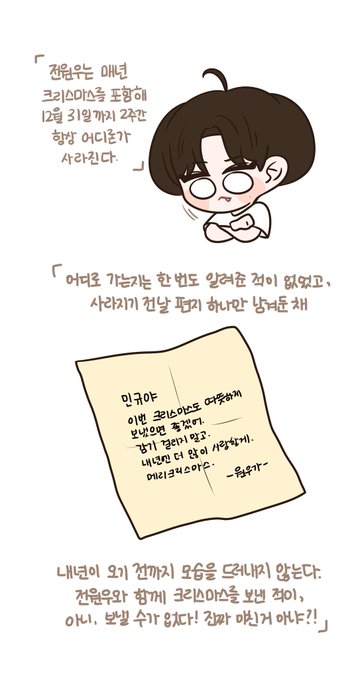 「전원우는 매년
크리스마스를 포함해
12월 31일까지 2주간
항상 어디론가
사라진다.」
「어디로 가는지는 한 번도 알려준 적이 없었고,
사라지기 전날 편지 하나만 남겨둔 채
민규야
이번 크리스마스도 따뜻하게
보냈으면 좋겠어.
감기 걸리지 말고.
내년엔 더 많이 사랑할게.
메리크리스마스.
-원우가-
내년이 오기 전까지 모습을 드러내지 않는다.
전원우와 함께 크리스마스를 보낸 적이,
아니, 보낼 수가 없다! 진짜 미친거 아냐?!」